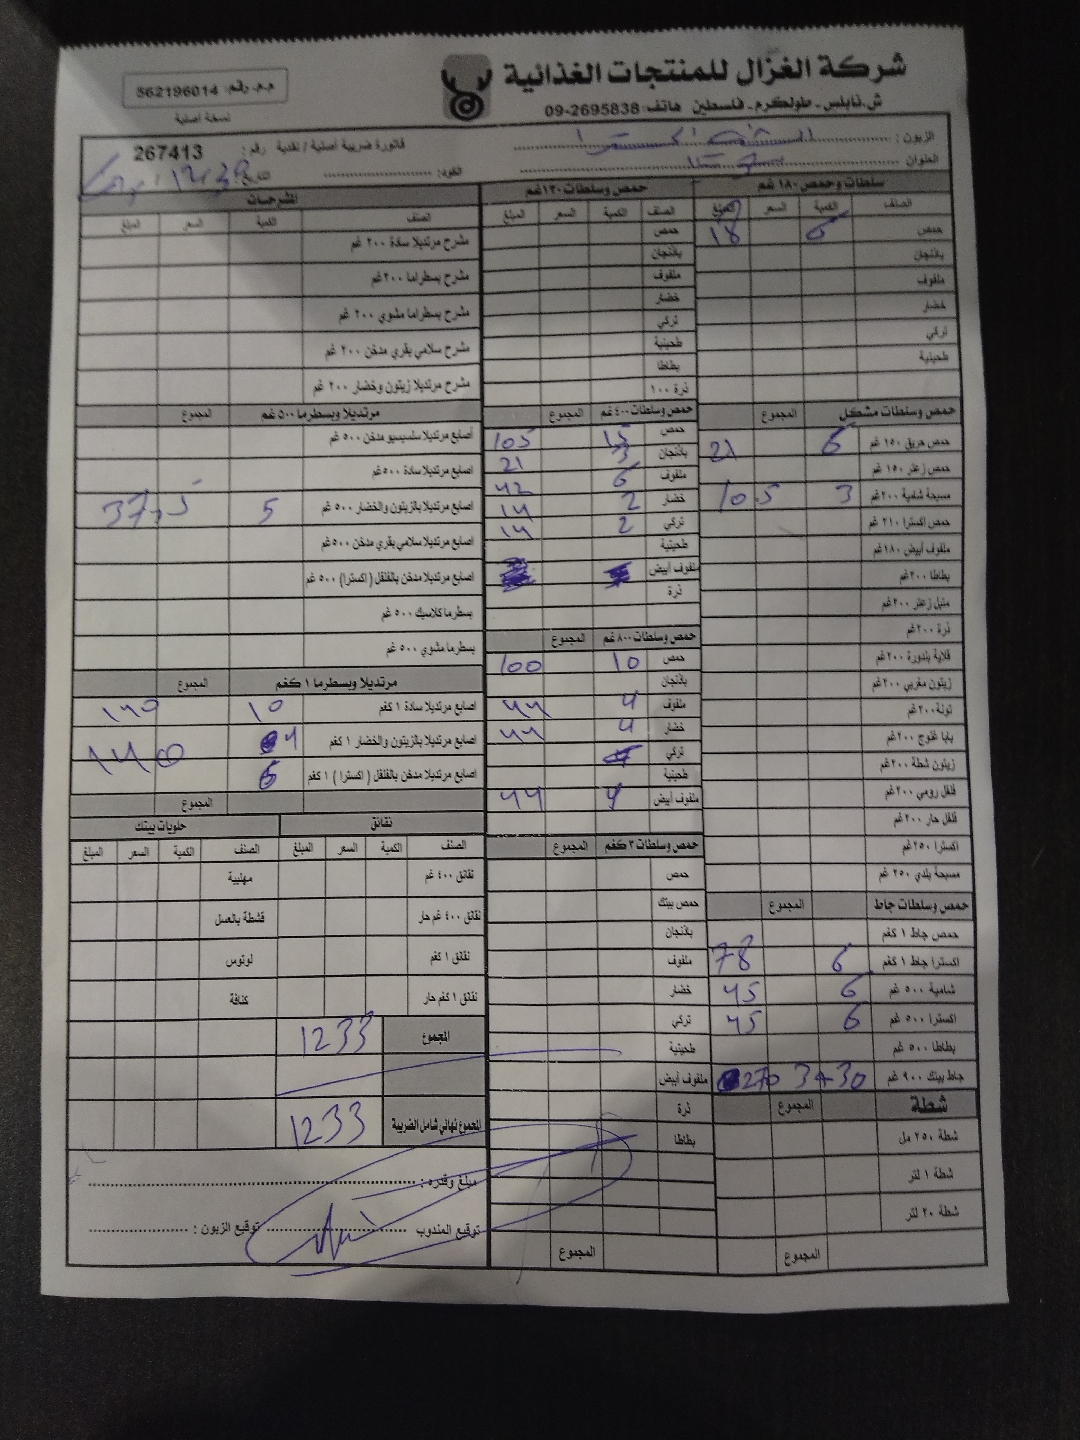 شركة الغزال للمنتجات الغذائية
ش.نابلس - طولكرم - فلسطين هاتف: 2695838-09
م.م. رقم: 562196014
نسخة أصلية
الزبون :
العنوان
فاتورة ضريبية أصلية / نقدية رقم : 267413
التاريخ: الكود:
سلطات وحمص ١٨٠ غم
الصنف الكمية السعر المبلغ
حمص 6 18
باذنجان
ملفوف
خضار
تركي
طحينية
حمص وسلطات مشكل المجموع
حمص حريق ١٥٠ غم 6 21
حمص زعتر ١٥٠ غم
مسبحة شامية ٢٠٠ غم 3 10.5
حمص اكسترا ٢١٠ غم
ملفوف أبيض ١٨٠ غم
بطاطا ٢٠٠ غم
متبل زعتر ٢٠٠ غم
ذرة ٢٠٠ غم
قلاية بندورة ٢٠٠ غم
زيتون مغربي ٢٠٠ غم
تونة ٢٠٠ غم
بابا غنوج ٢٠٠ غم
زيتون شطة ٢٠٠ غم
فلفل رومي ٢٠٠ غم
فلفل حار ٢٠٠ غم
اكسترا ٢٥٠ غم
مسبحة بلدي ٢٥٠ غم
حمص وسلطات جاط المجموع
حمص جاط ١ كغم
اكسترا جاط ١ كغم 6 78
شامية ٥٠٠ غم 6 45
اكسترا ٥٠٠ غم 6 45
بطاطا ٥٠٠ غم
جاط بيتك ٩٠٠ غم 30 270
شطة المجموع
شطة ٢٥٠ مل
شطة ١ لتر
شطة ٢٠ لتر
المجموع
حمص وسلطات ١٣٠ غم
الصنف الكمية السعر المبلغ
حمص
باذنجان
ملفوف
خضار
تركي
طحينية
بطاطا
ذرة ١٠٠
حمص وسلطات ٤٠٠ غم المجموع
حمص 15 105
باذنجان 3 21
ملفوف 6 42
خضار 2 14
تركي 2 14
طحينية
ملفوف أبيض
ذرة
حمص وسلطات ٨٠٠ غم المجموع
حمص 10 100
باذنجان
ملفوف 4 44
خضار 4 44
تركي
طحينية
ملفوف أبيض 4 44
حمص وسلطات ٣ كغم المجموع
حمص
حمص بيتك
باذنجان
ملفوف
خضار
تركي
طحينية
ملفوف أبيض
ذرة
بطاطا
المجموع
المشرحات
الصنف الكمية السعر المبلغ
مشرح مرتديلا سادة ٢٠٠ غم
مشرح بسطراما ٢٠٠ غم
مشرح بسطراما مشوي ٢٠٠ غم
مشرح سلامي بقري مدخن ٢٠٠ غم
مشرح مرتديلا زيتون وخضار ٢٠٠ غم
مرتديلا وبسطرما ٥٠٠ غم المجموع
أصابع مرتديلا سلسيسيو مدخن ٥٠٠ غم
أصابع مرتديلا سادة ٥٠٠ غم
أصابع مرتديلا بالزيتون والخضار ٥٠٠ غم 5 37,5
أصابع مرتديلا سلامي بقري مدخن ٥٠٠ غم
أصابع مرتديلا مدخن بالفلفل (اكسترا) ٥٠٠ غم
بسطرما كلاسيك ٥٠٠ غم
بسطرما مشوي ٥٠٠ غم
مرتديلا وبسطرما ١ كغم المجموع
اصابع مرتديلا سادة ١ كغم 10 140
اصابع مرتديلا بالزيتون والخضار ١ كغم 4 140
اصابع مرتديلا مدخن بالفلفل ( اكسترا ) ١ كغم 6
المجموع
نقانق
الصنف الكمية السعر المبلغ
نقانق ٤٠٠ غم
نقانق ٤٠٠ غم حار
نقانق ١ كغم
نقانق ١ كغم حار
حلويات بيتك
الصنف الكمية السعر المبلغ
مهلبية
قشطة بالعسل
لوتوس
كنافة
المجموع 1233
المجموع نهائي شامل الضريبة 1233
مبلغ وقدره :
توقيع المندوب توقيع الزبون :